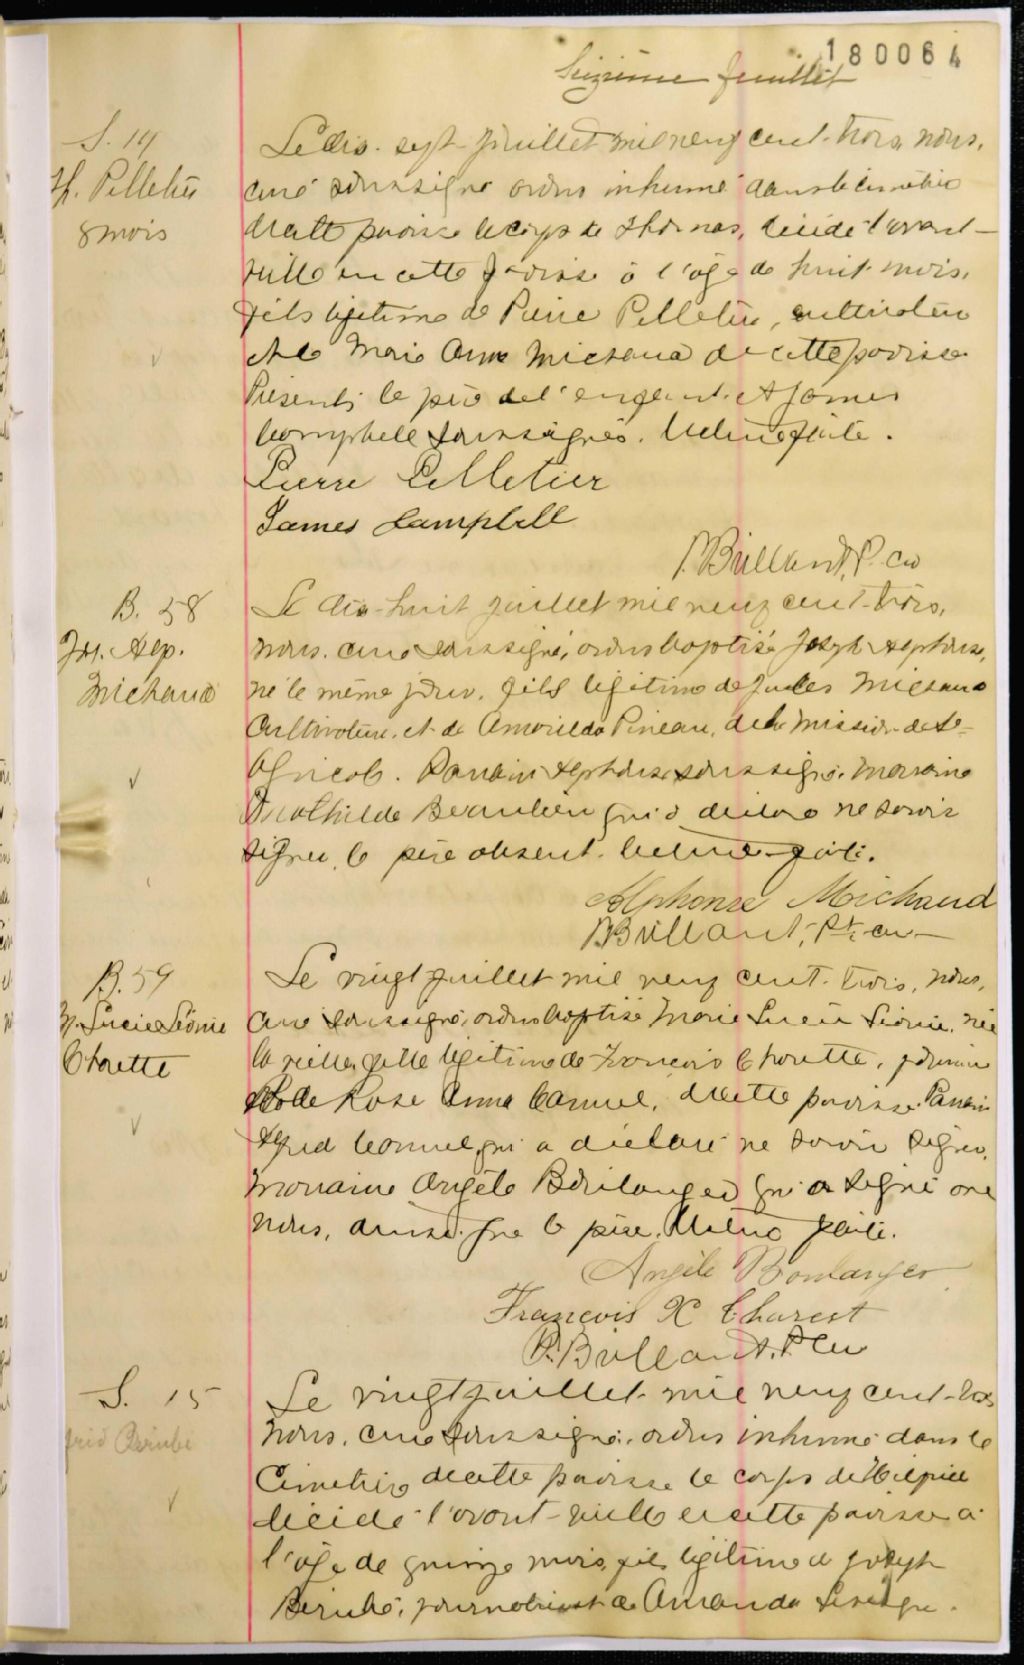 180064
Seizième feuillet
S. 14
Th. Pelletier
8 mois
Le dix-sept juillet mil neuf cent-trois, nous,
curé soussigné avons inhumé dans le cimetière
de cette paroisse le corps de Thomas, décédé l'avant-
veille en cette paroisse à l'âge de huit mois,
fils légitime de Pierre Pelletier, cultivateur
et de Marie Anne Michaud de cette paroisse
Présents le père de l'enfant et James
Campbell soussignés. Lecture faite.
Pierre Pelletier
James Campbell
P. Brillant, P. cu
B. 58
Jos. Alp.
Michaud
Le dix-huit juillet mil neuf cent-trois,
nous, curé soussigné, avons baptisé Joseph Alphonse,
né le même jour, fils légitime de Jules Michaud
Cultivateur, et de Amarilda Pineau, de la mission de St-
Parrain Alphonse soussigné, marraine
Mathilde Beaulieu qui a déclaré ne savoir
signer, le père absent. Lecture faite.
Alphonse Michaud
P. Brillant, Ptre cu
B. 59
M. Lucie Léonie
Chouette
Le vingt juillet mil neuf cent-trois, nous,
curé soussigné, avons baptisé Marie Lucie Léonie, née
la veille, fille légitime de François Chouette, journalier
et de Rose Anna Canuel, de cette paroisse. Parrain
Canuel, qui a déclaré ne savoir signer,
marraine Angèle Boulanger qui a signé avec
nous, ainsi que le père. Lecture faite.
Angèle Boulanger
François X Charest
P. Brillant, P. Cu
S. 15
frid Bérubé
Le vingt juillet mil neuf cent-trois
nous, curé soussigné, avons inhumé dans le
Cimetière de cette paroisse le corps de
décédé l'avant-veille en cette paroisse à
l'âge de quinze mois, fils légitime de Joseph
Bérubé, journalier et de Amanda